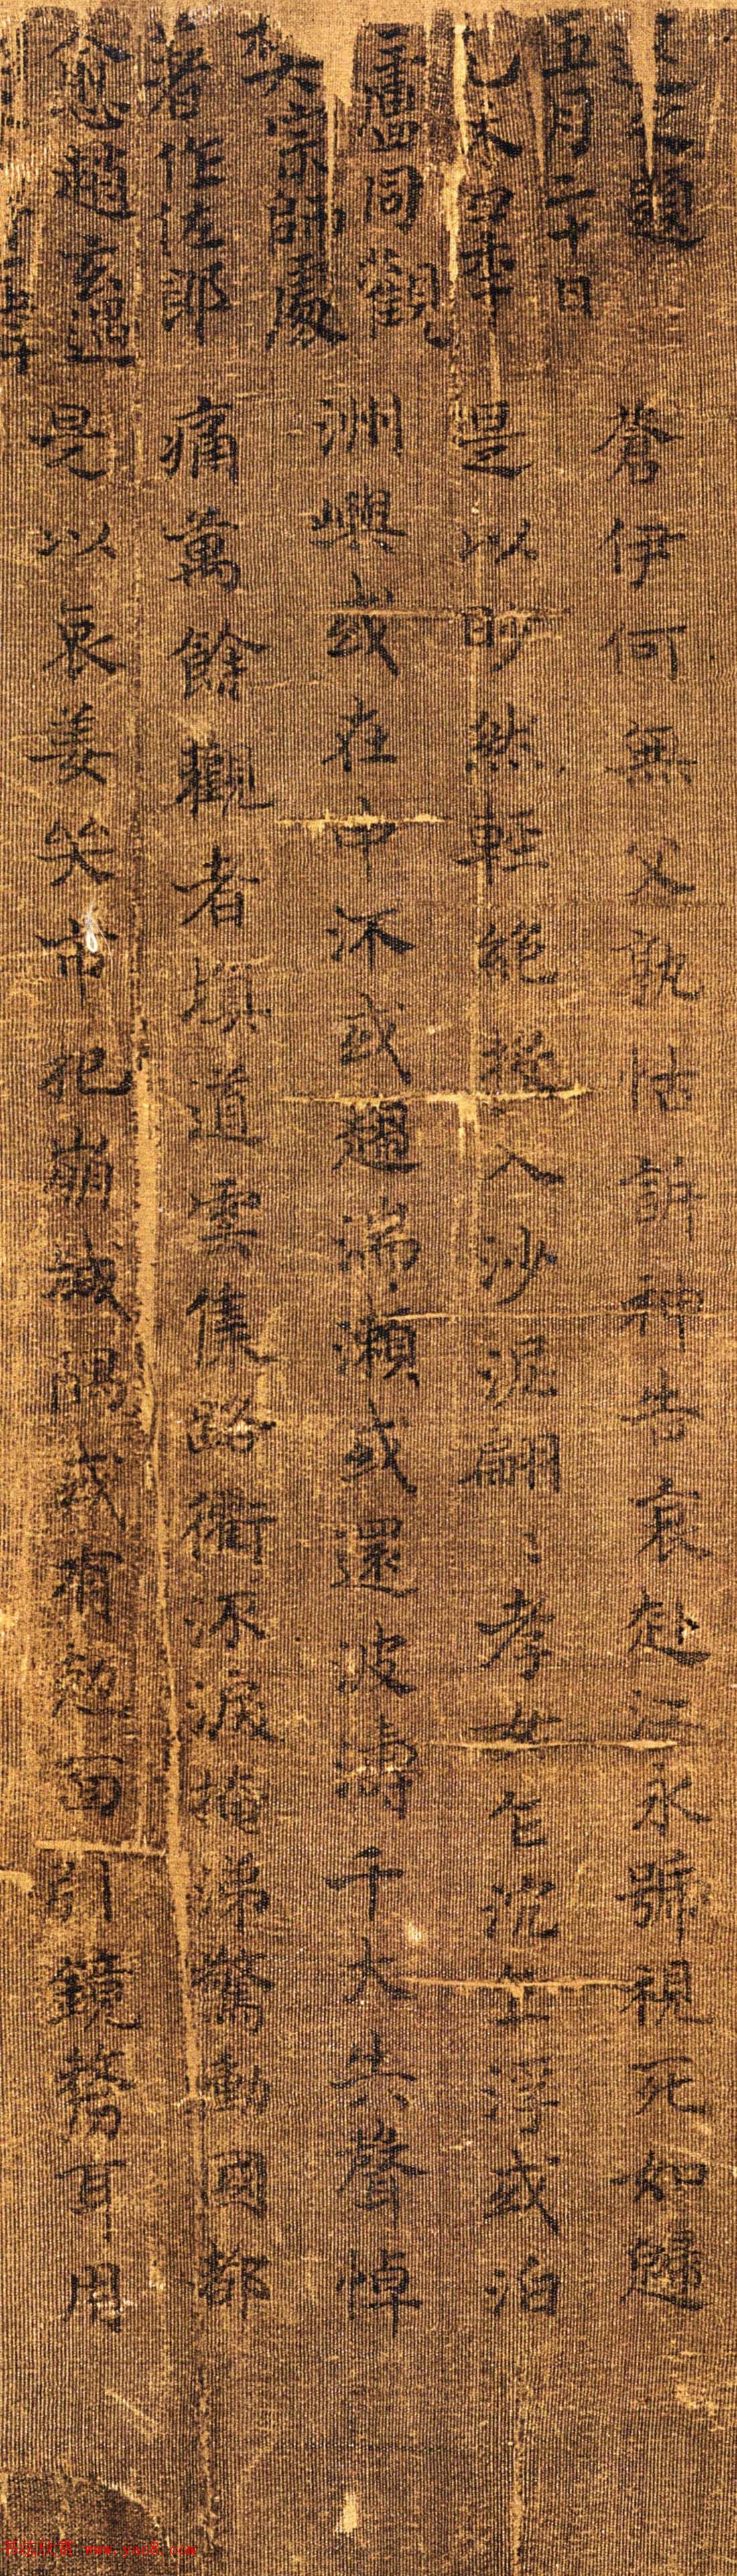 題
五月二十日
同觀
大宗師處
著作佐郎
愈趙玄遇
蒼伊何無父孰怙訴神告哀赴江永號視死如歸
是以眇然輕絕投入沙泥翩:孝女乍沉乍浮或泊
洲嶼或在中流或趨湍瀨或還波濤千夫失聲悼
痛萬餘觀者填道雲集路衢流淚掩涕驚動國都
是以哀姜哭市杞崩城隅或有剋面引鏡剺耳用
www.yac8.com